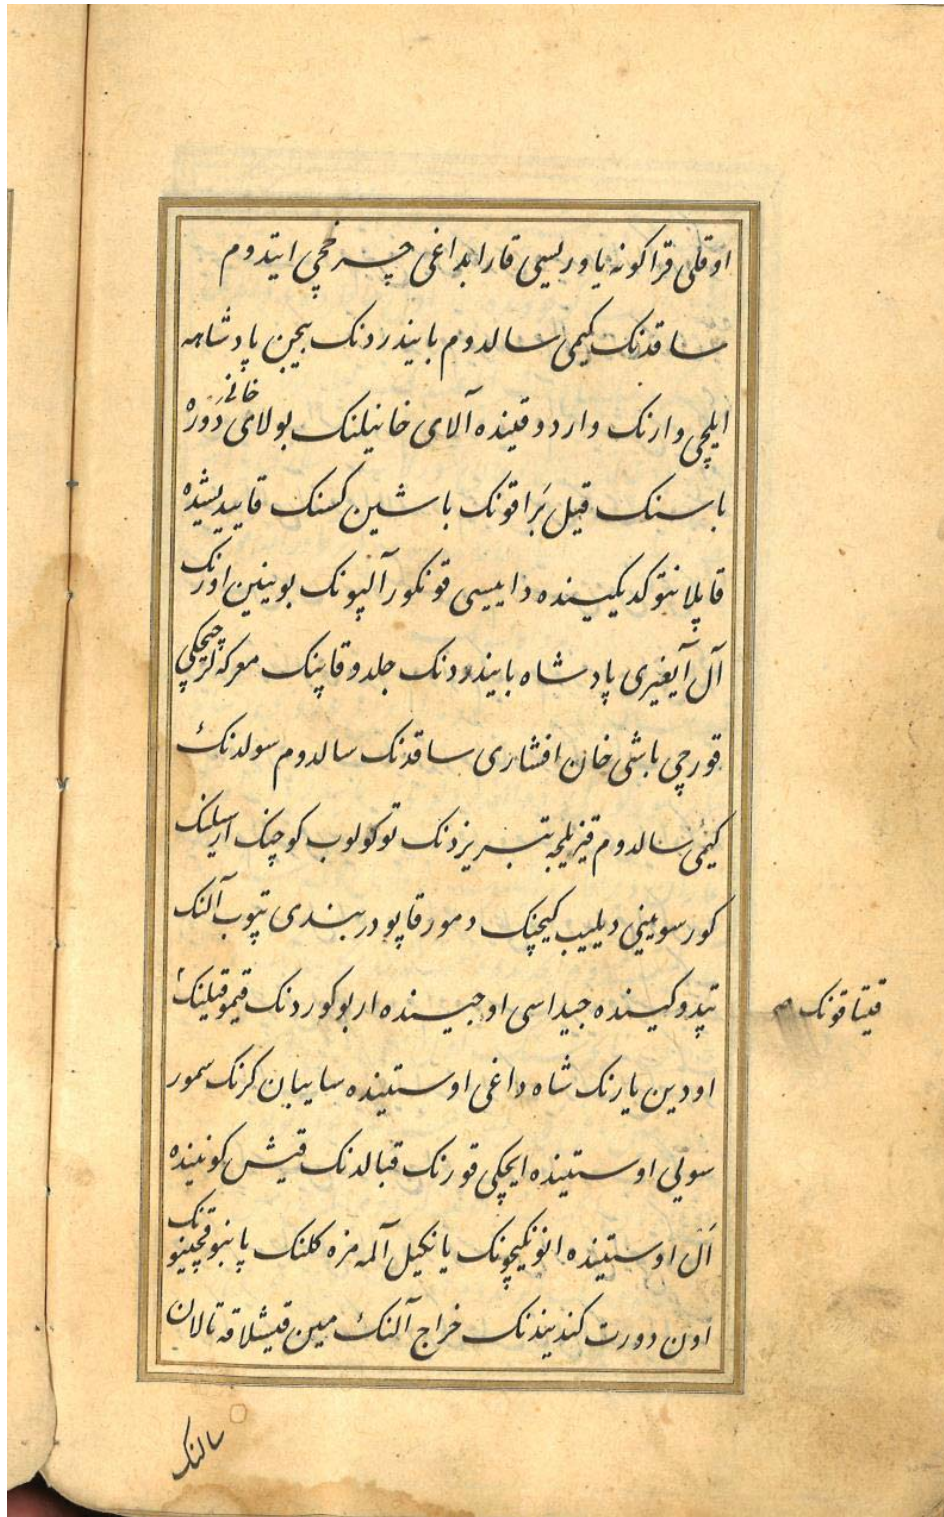 اوقلی قراکونه یاوریسی قارابداغی چرخچی ایتدوم
ساقدنک کیمی سالدوم بایندردنک بیجن پادشاهه
ایلچی وارنک واردوقینده آلای خانیلنک بولای خانی دَوره
باسنک قیل بَراقونک باشین کسنک قاییدیشیده
قاپلانتو کدیکینده داییسی قونکور آلپونک بوینین اورنک
آل آیغیری پادشاه بایندردنک جلدو قاپنک معرکه لرچیچکی
قورچی باشی خان افشاری ساقدنک سالدوم سولدنک
کیمی سالدوم قیزیلجه تبریزدنک توکولوب کوچنک ارسلنک
کورسویینی دیلیب کیچنک دمورقاپو دربندی تپوب آلنک
تپدوکینده جیداسی اوجینده اربوکوردنک قیموقیلنک
قیتاقونک صح
اودین یارنک شاه داغی اوستینده سایبان کرنک سمور
سویی اوستینده ایچکی قورنک قبالدنک قیش کونینده
اَل اوستینده انونکیچونک یانکیل آلمه مزه کلنک پاینوقچینو
اون دورت کندیندنک خراج آلنک مین قیشلاقه تالان
سالنک